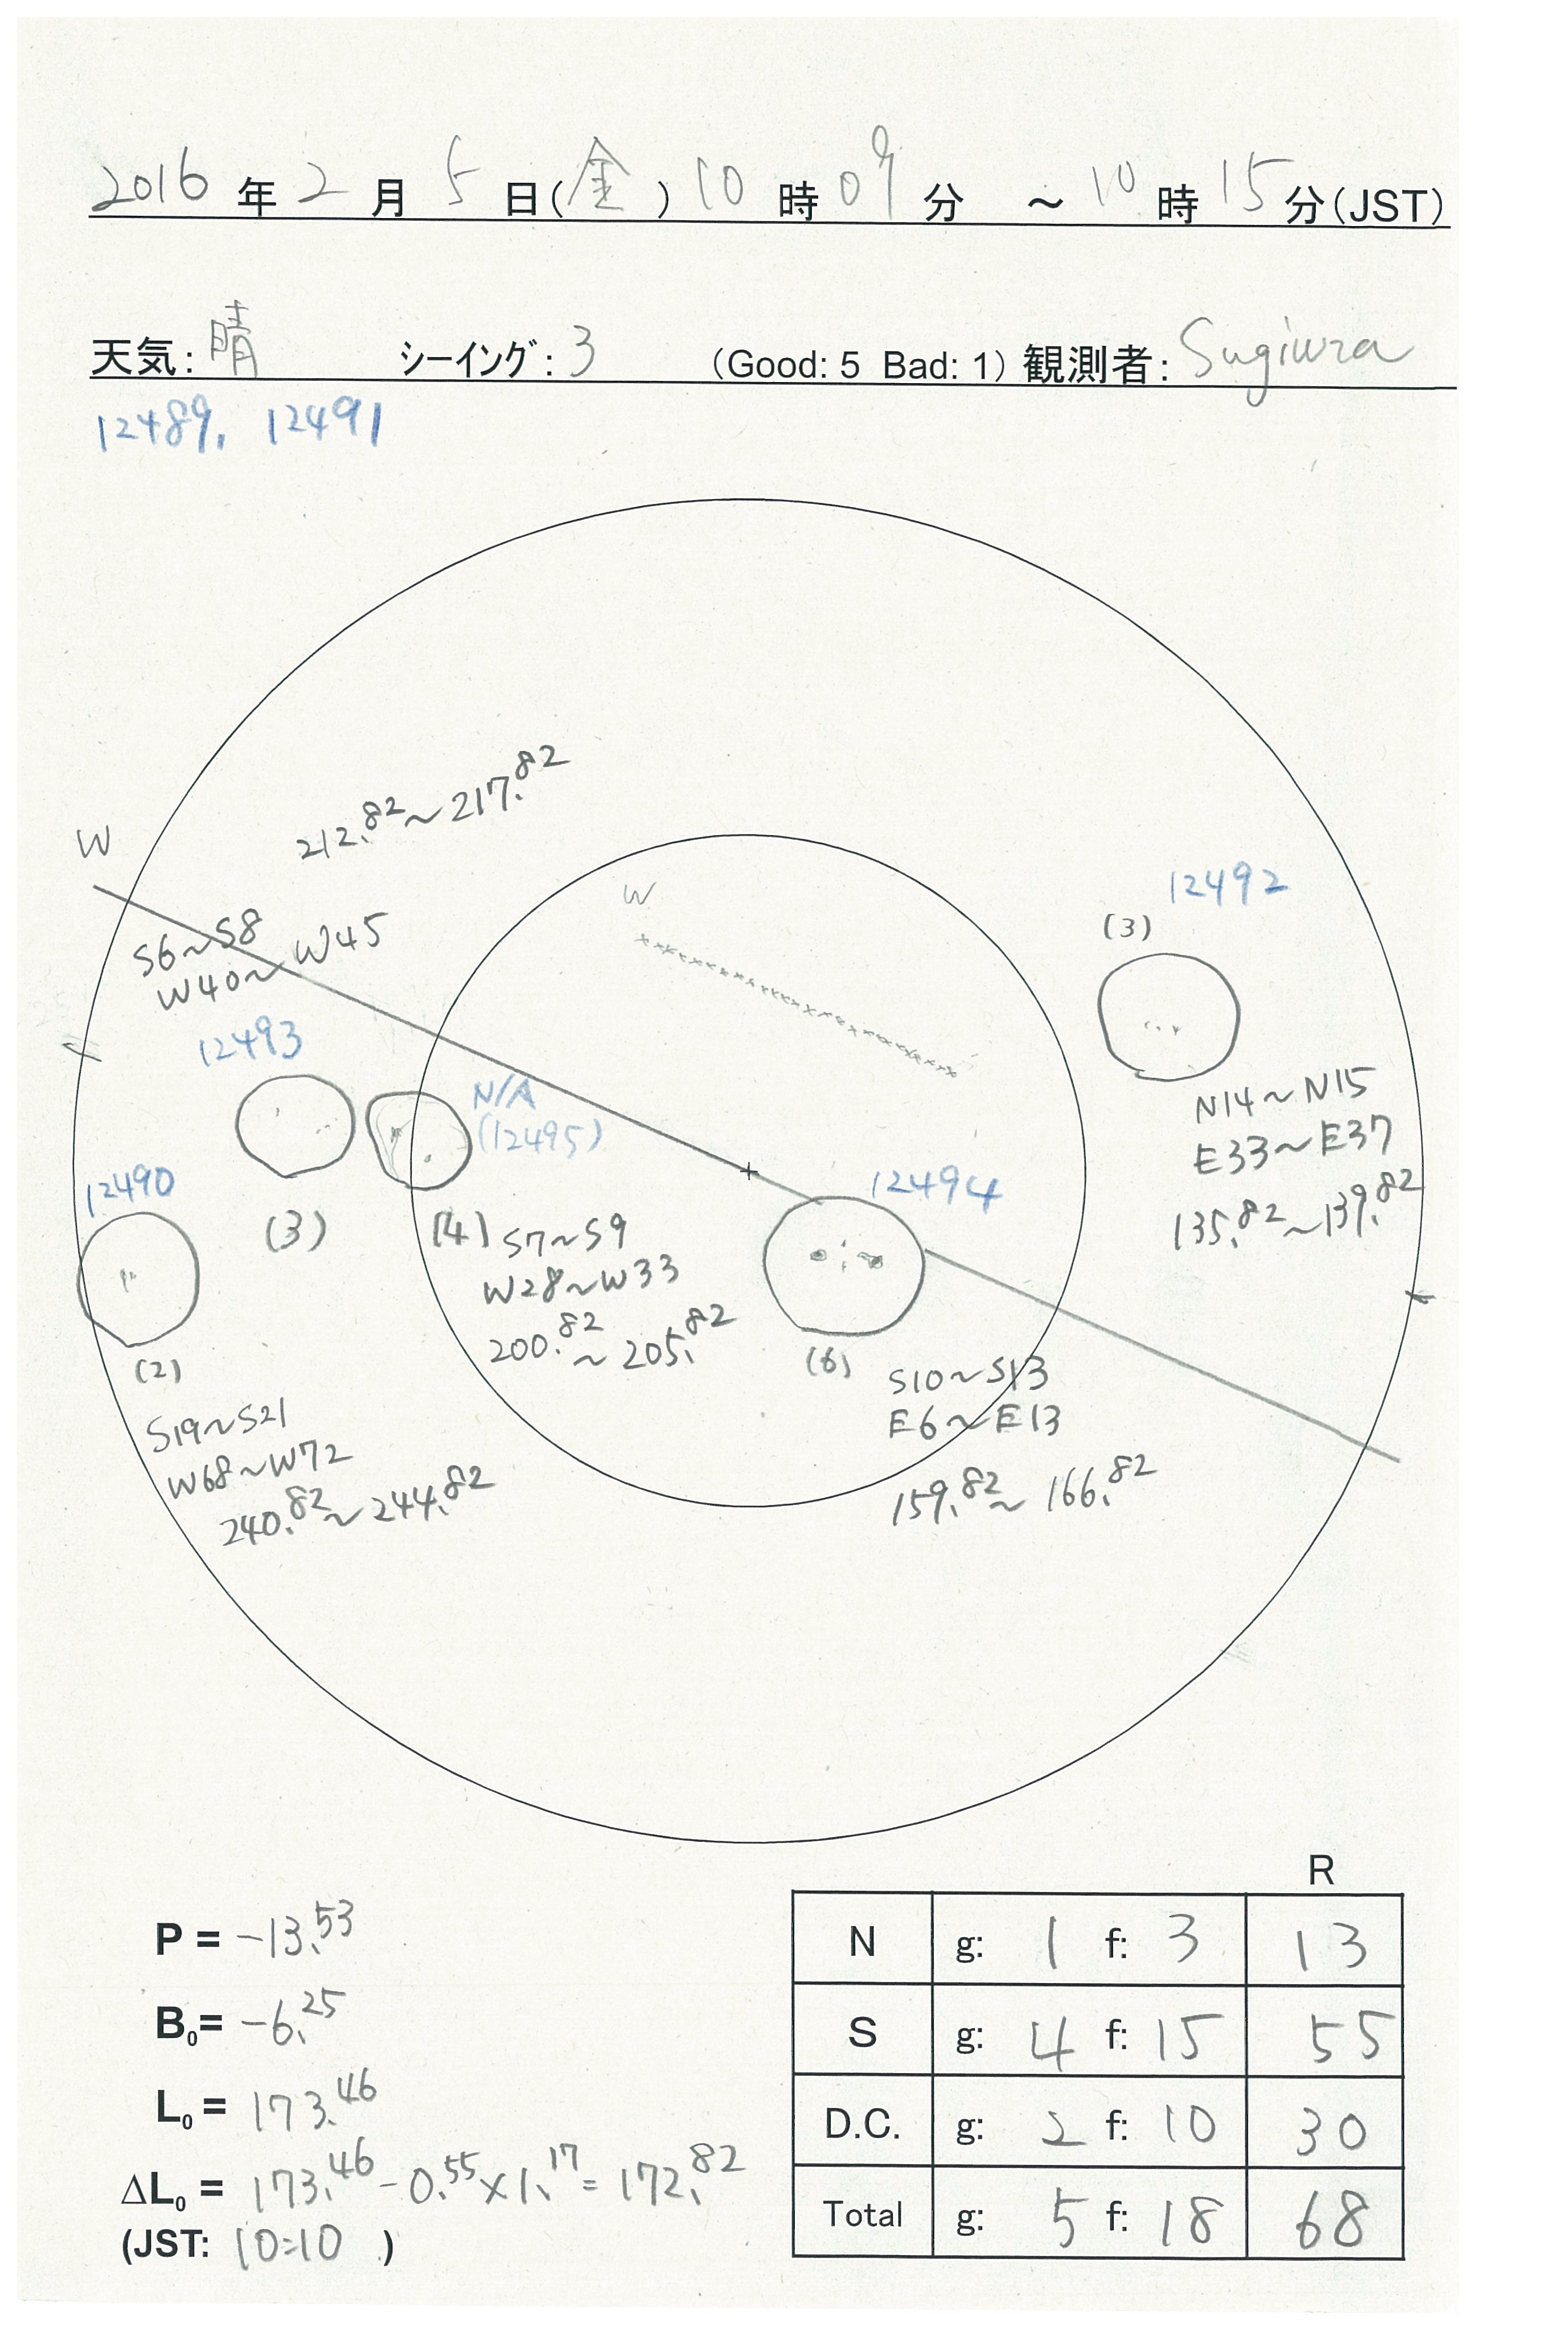 2016 年 2 月 5 日(金) 10 時 09 分 ～ 10 時 15 分(JST)
天気: 晴 シーイング: 3 (Good: 5 Bad: 1) 観測者: Sugiura
12489, 12491
212.82～217.82
W
S6～S8
W40～W45
W
12492
(3)
12493
N/A
(12495)
N14～N15
E33～E37
135.82～139.82
12490
12494
(3)
(4)
S7～S9
W28～W33
200.82～205.82
(2)
(6)
S10～S13
E6～E13
159.82～166.82
S19～S21
W68～W72
240.82～244.82
R
P = -13.53
N g: 1 f: 3 13
B0= -6.25
S g: 4 f: 15 55
L0 = 173.46
D.C. g: 2 f: 10 30
ΔL0 = 173.46-0.55×1.17=172.82
Total g: 5 f: 18 68
(JST: 10:10 )